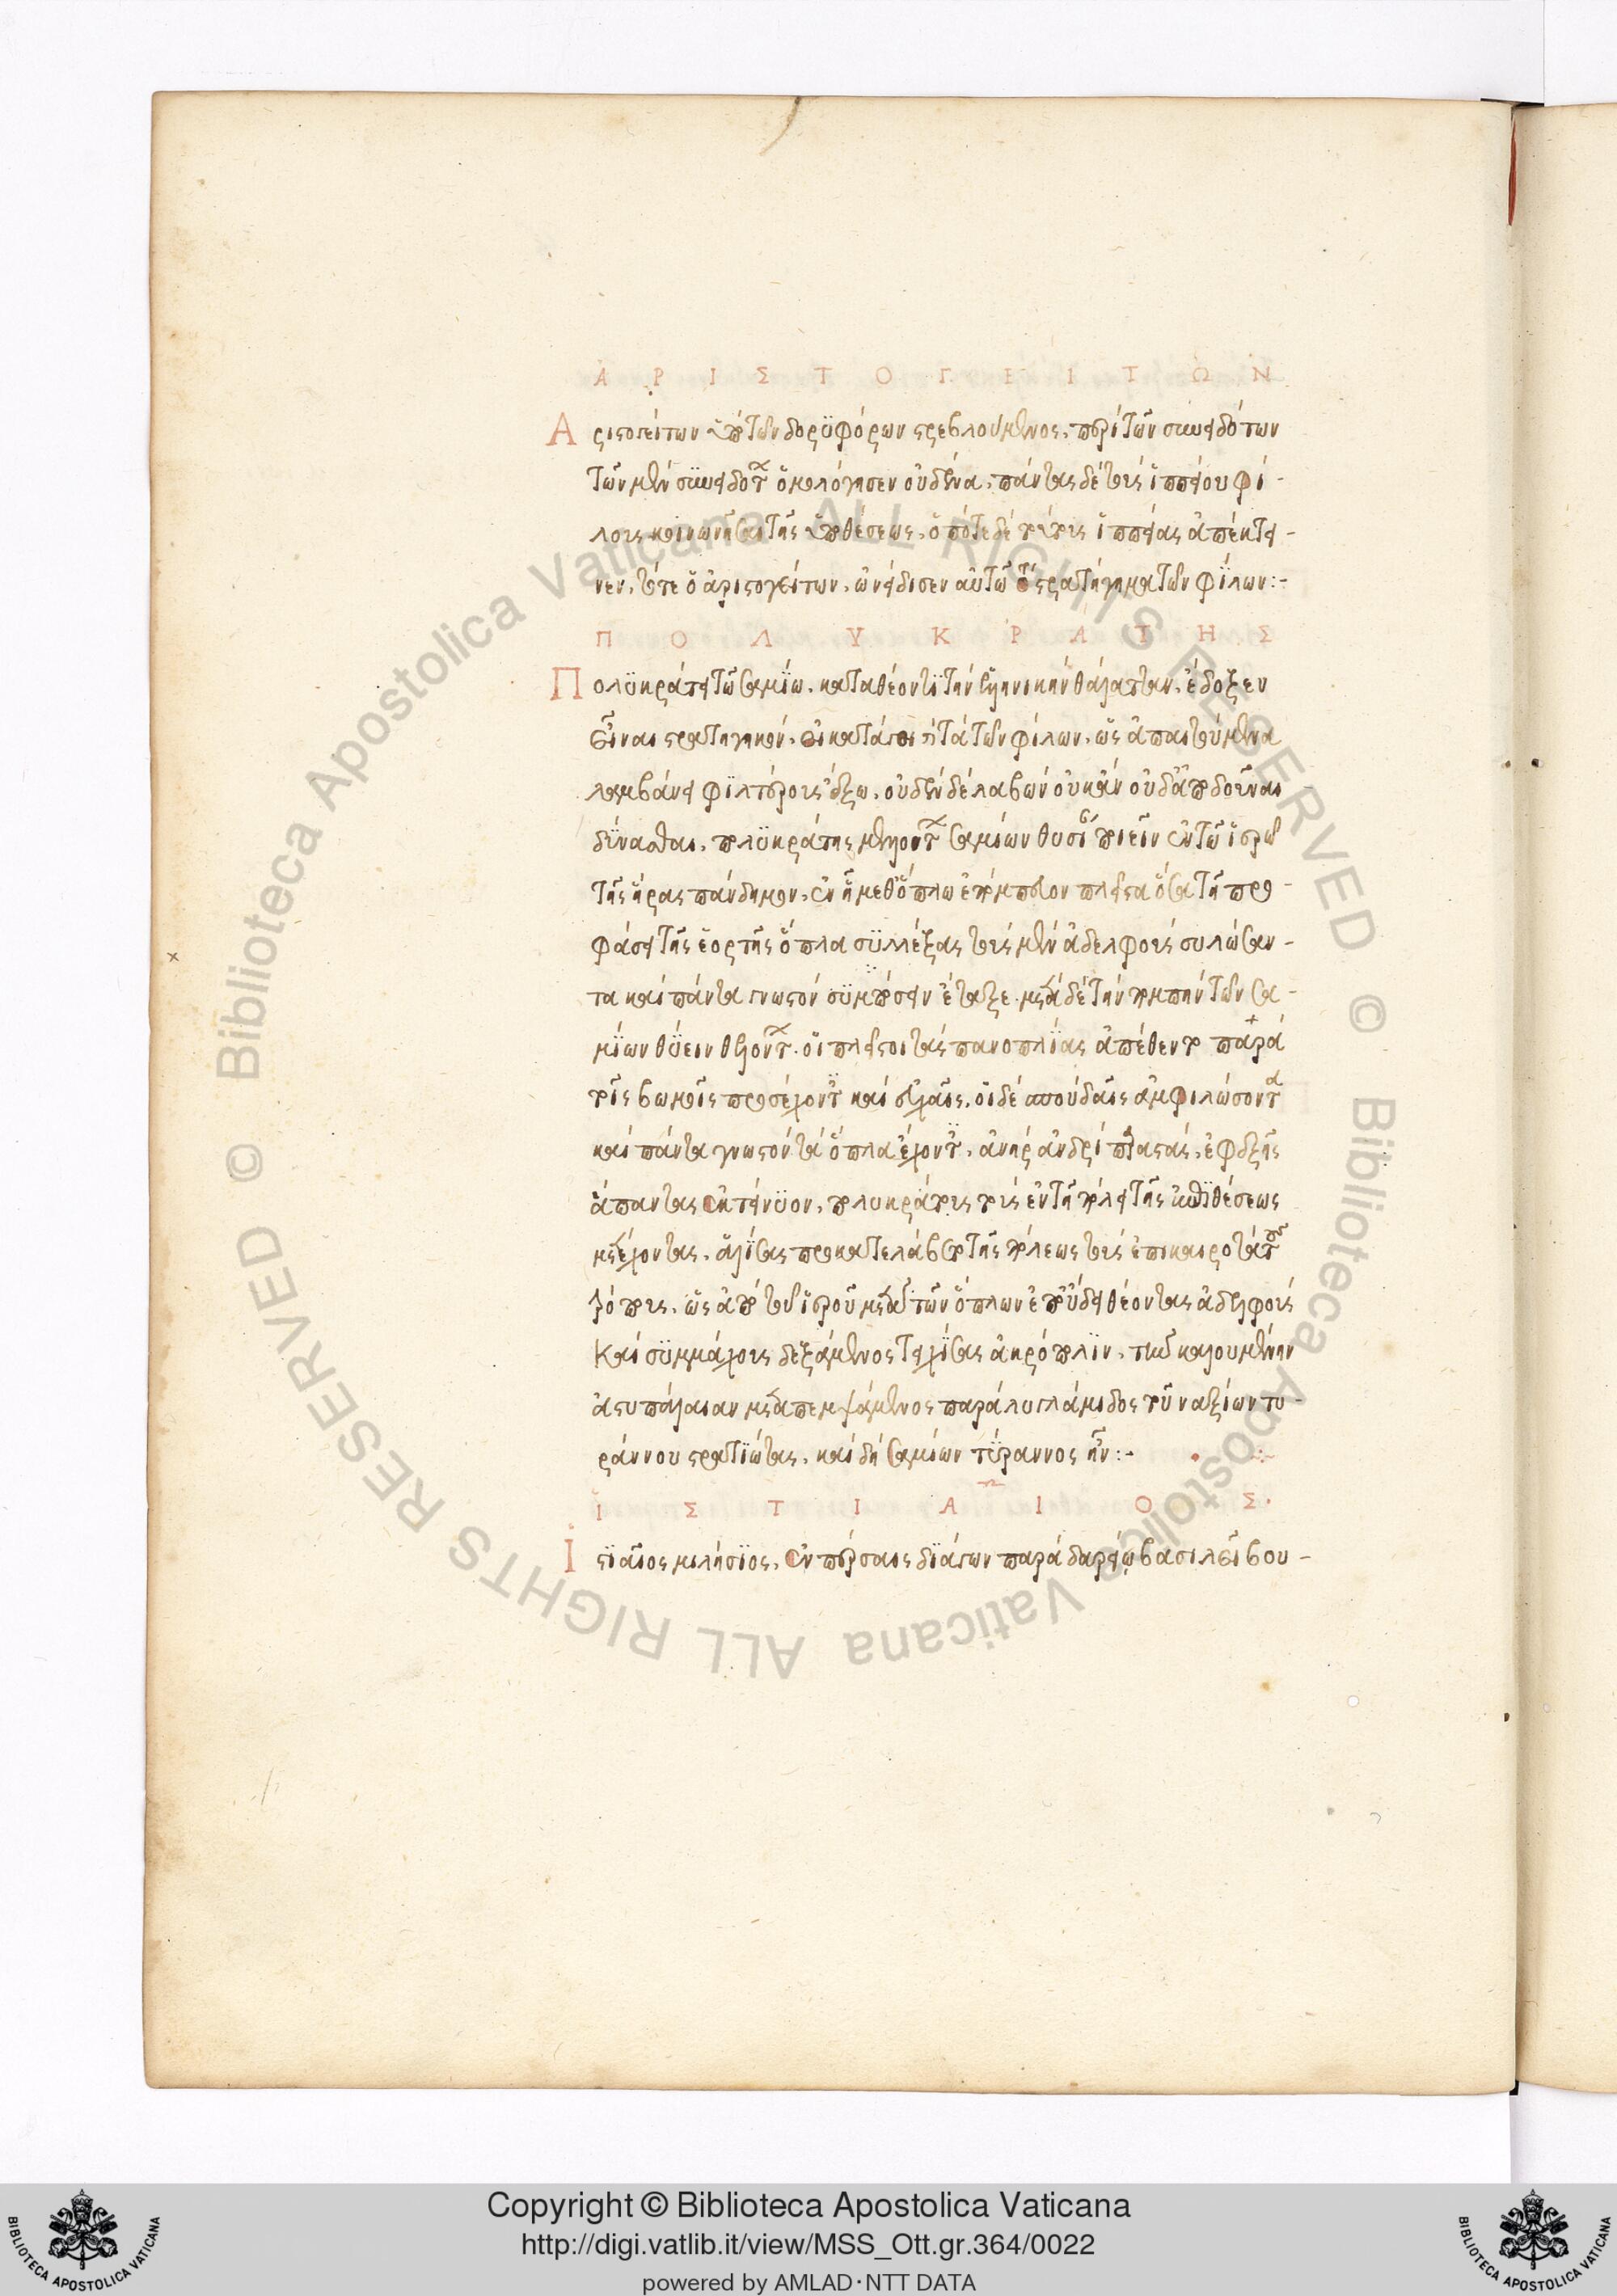 ΑΡΙΣΤΟΓΕΙΤΩΝ
Ἀριστογείτων ὑπὸ τῶν δορυφόρων στρεβλούμενος, περὶ τῶν συνειδότων
τῶν μὲν συνειδότων ὁμολόγησεν οὐδένα, πάντας δὲ τοὺς ἱππίου φί-
λους κοινωνῆσαι τῆς ὑποθέσεως, ὁπότε δὲ τούτους ἱππίας ἀπέκτει-
νεν, τότε ὁ ἀριστογείτων, ὠνείδισεν αὐτῷ τὸ στρατήγημα τῶν φίλων:-
ΠΟΛΥΚΡΑΤΗΣ
Πολυκράτει τῷ σαμίῳ, καταθέοντι τὴν ἑλληνικὴν θάλατταν, ἔδοξεν
εἶναι στρατηγικὸν, εἰ κατάγοι τὰ τῶν φίλων, ὡς ἀπαιτούμενα
λαμβάνει φιλτέρους ἕξω, οὐδὲν δὲ λαβὼν οὐκ ἂν οὐδ' ἀποδοῦναι
δύνασθαι, πολυκράτης μελλόντων σαμίων θυσίαν ποιεῖν ἐν τῷ ἱερῷ
τῆς ἥρας πάνδημον, ἐν ᾗ μεθ' ὅπλων ἐπόμπευον πλεῖστα ὅσα τῇ προ-
φάσει τῆς ἑορτῆς ὅπλα συλλέξας τοὺς μὲν ἀδελφοὺς συλώσαν-
τα καὶ πάντα γνωστὸν ἔταξε μετὰ δὲ τὴν πομπὴν τῶν σα-
μίων θύειν θελόντων οἱ πλεῖστοι τὰς πανοπλίας ἀπέθεντο παρὰ
τοῖς βωμοῖς προσέχοντες καὶ εὐχαῖς, οἱ δὲ σπονδαῖς ἀμφὶ
καὶ πάντα γνωστὸν τὰ ὅπλα ἔχοντες, ἀνὴρ ἀνδρὶ παραστὰς, ἐφεξῆς
ἅπαντας ἐκτίνυον, πολυκράτους τοὺς ἐν τῇ πόλει τῆς ἐπιθέσεως
μετέχοντας, ἁλίσας προκατελάβετο τῆς πόλεως τοὺς ἐπικαιροτάτους
τόπους, ὡς ἀπὸ τοῦ ἱεροῦ μετὰ τῶν ὅπλων θέοντας ἀδελφοὺς
καὶ συμμάχους δεξάμενος τειχίσας ἀκρόπολιν, τὴν καλουμένην
ἀστυπάλαιαν μεταπεμψάμενος παρὰ λυγλάμιδος τοῦ ναξίων τυ-
ράννου στρατιώτας, καὶ δὴ σαμίων τύραννος ἦν:-
ΙΣΤΙΑΙΟΣ.
Ἱστιαῖος μιλήσιος, ἐν πέρσαις διάγων παρὰ δαρείῳ βασιλεῖ βου-
Copyright © Biblioteca Apostolica Vaticana
http://digi.vatlib.it/view/MSS_Ott.gr.364/0022
powered by AMLAD·NTT DATA
BIBLIOTECA APOSTOLICA VATICANA
BIBLIOTECA APOSTOLICA VATICANA
© Biblioteca Apostolica Vaticana ALL RIGHTS RESERVED © Biblioteca Apostolica Vaticana ALL RIGHTS RESERVED